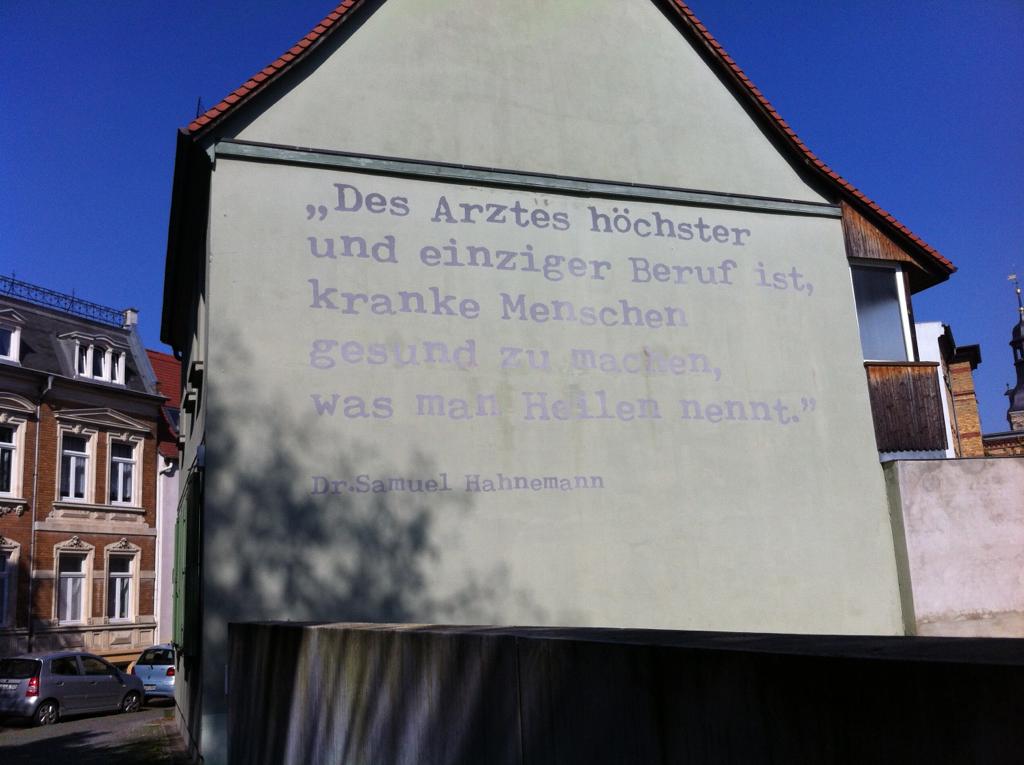 „Des Arztes höchster
und einziger Beruf ist,
kranke Menschen
gesund zu machen,
was man Heilen nennt.”
Dr.Samuel Hahnemann